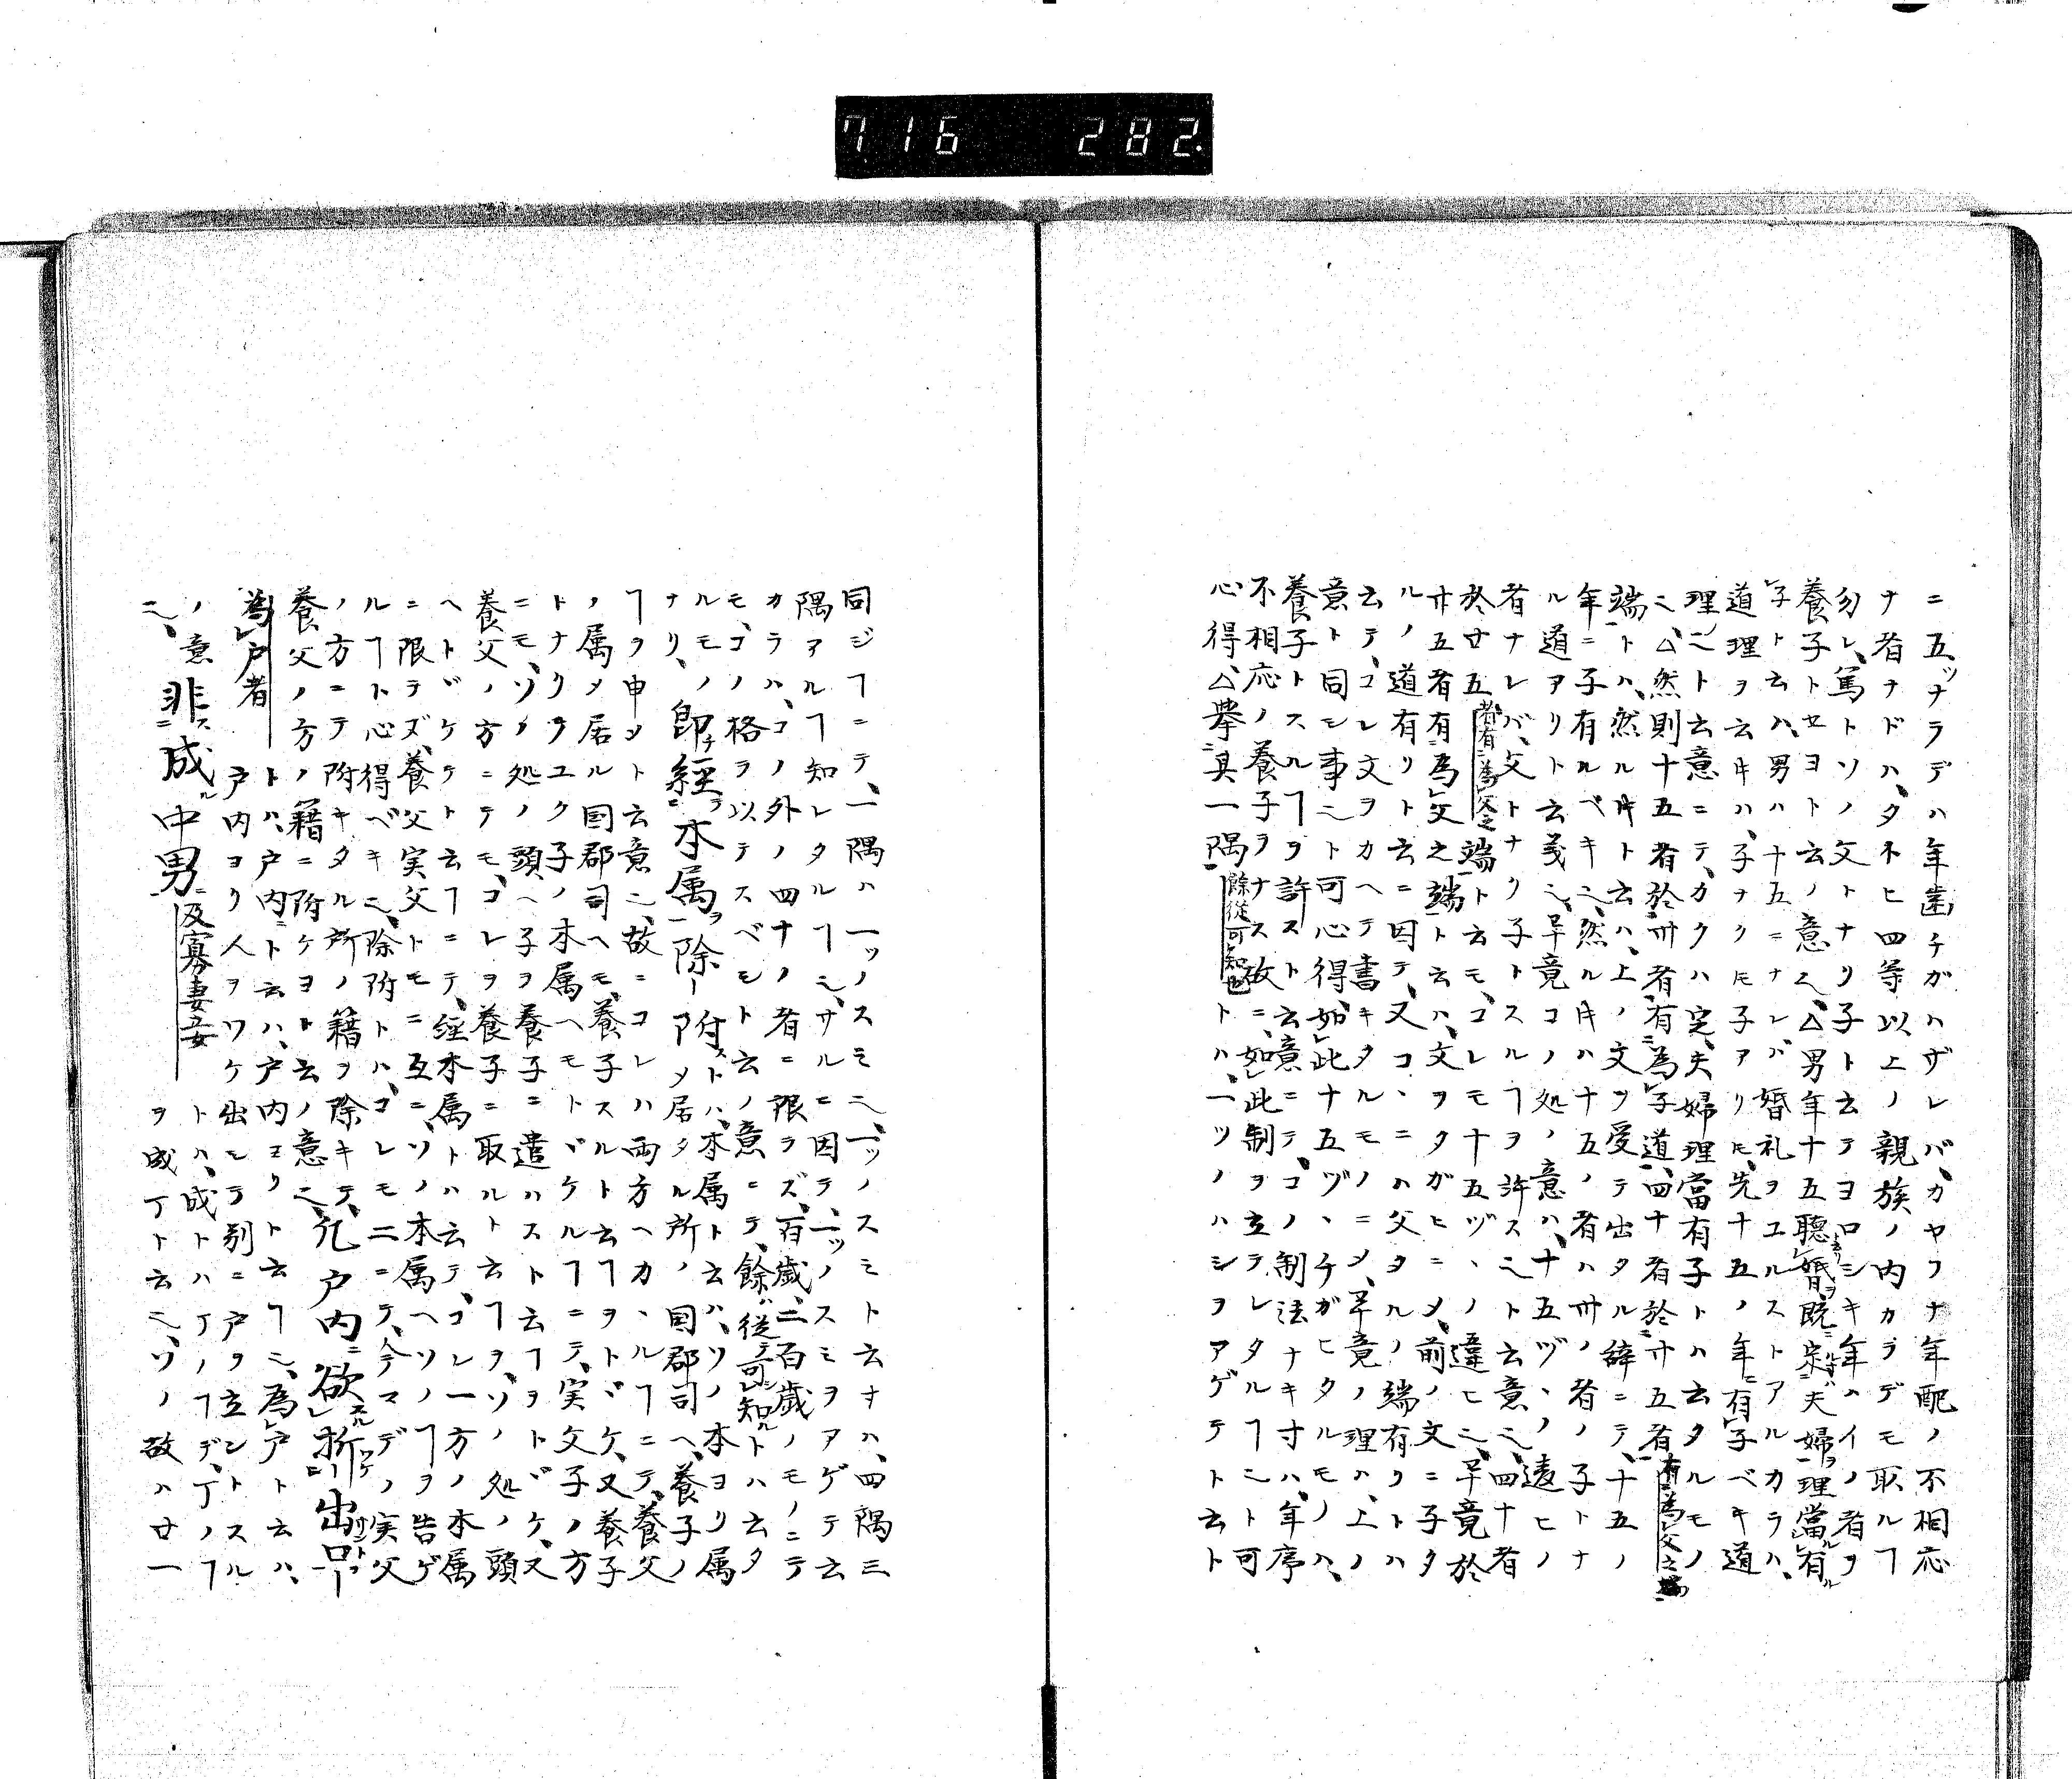 716 282
ニ五ッナラデハ年齒チガハザレバ、カヤフナ年配ノ不相応
ナ者ナドハ、タネヒ四等以上ノ親族ノ内カラデモ取ルヿ
勿レ、篤トソノ父トナリ子ト云テヨロシキ年ハイノ者ヲ
養子トセヨト云ノ意也、△男年十五聴婚、既定夫婦理當有
子ト云ハ、男ハ十五ニナレバ婚礼ヲユルストアルカラハ、
道理ヲ云キハ、子ナクトモ子アリトモ、先十五ノ年ニ有子ベキ道
理ニト云意ニテ、カクハ定夫婦理當有子トハ云タルモノ
ニ、△然則十五者於卅者有為子道、四十者於廿五者有為父之端
端トハ、然ルキト云ハ、上ノ文ヲ受テ出タル辞ニテ、十五ノ
年ニ子有ルベキニ、然ルキハ十五ノ者ハ卅ノ者ノ子トナ
ル道アリト云義ニ、畢竟コノ処ノ意ハ、十五ヅヽノ違ヒノ
者ナレバ、父トナリ子トスルヿヲ許スニト云意ニ、四十者
於廿五者有為父之端ト云モ、コレモ十五ヅヽノ違ヒニ、畢竟於
廿五者有為父之端ト云ハ、文ヲタガヒニメ、前ノ文ニ子タ
ルノ道有リト云ニ因テ、又コヽニハ父タルノ端有リトハ
云テ、コレ文ヲカヘテ書キタルモノニメ、畢竟ノ理ハ、上ノ
意ト同モ事ニト可心得、如此十五ヅヽチガヒタルモノハ、
養子トスルヿヲ許スト云意ニテ、コノ制法ナキ寸ハ、年序
不相応ノ養子ヲナス故ニ、如此制ヲ立テレタルヿニト可
心得、△挙其一隅餘從可知也トハ、一ツノハシヲアゲテト云ト
同ジヿニテ、一隅ハ一ッノスミニ、一ッノスミト云ナハ、四隅三
隅アルヿ知レタルヿニ、サルニ因テ、一ッノスミヲアゲテ云
カラハ、コノ外ノ四ナノ者ニ限ラズ、百歳、二百歳ノモノニテ
モ、コノ格ヲ以テスベモト云ノ意ニテ、餘ハ従テ可知ルトハ云タ
ルモノナリ、即経本属除附ストハ、本属ト云ハ、ソノ本ヨリ属
メ居タル所ノ国郡司ヘ、養子ノ
ヿヲ申ヲト云意ニ、故ニコレハ両方ヘカヽルヿニテ、養父
ノ属メ居ル国郡司ヘモ、養子スルト云ヿヲトヾケ、又養子
トナリヲユク子ノ本属ヘモトヾケルヿニテ、実父子ノ方
ニモ、ソノ処ノ頭ヘ子ヲ養子ニ遣ハスト云ヿヲトヾケ、又
養父ノ方ニテモ、コレヲ養子ニ取ルト云ヿヲ、ソノ処ノ頭
ヘトヾケテト云ヿニテ、経本属トハ云テ、コレ一方ノ本属
ニ限テズ、養父実父トモニ互ニ、ソノ本属ヘソノヿヲ告ゲ
ルヿト心得ベキニ、除附トハ、コレモ二ニテ、今マデノ実父
ノ方ニテ附キタル所ノ籍ヲ除キテ、
養父ノ方ノ籍ニ附ケヨト云ノ意ニ、凡戸内欲析出口
為戸者トハ、戸内ニト云ハ、戸内ヨリト云ヿニ、為戸ト云ハ、
戸内ヨリ人ヲワケ出モテ別ニ戸ヲ立ントスル
ノ意非成中男及寡妻妾トハ、成トハ丁ノヿデ、丁ノヿ
ニ、ヲ成丁ト云ニ、ソノ故ハ廿一